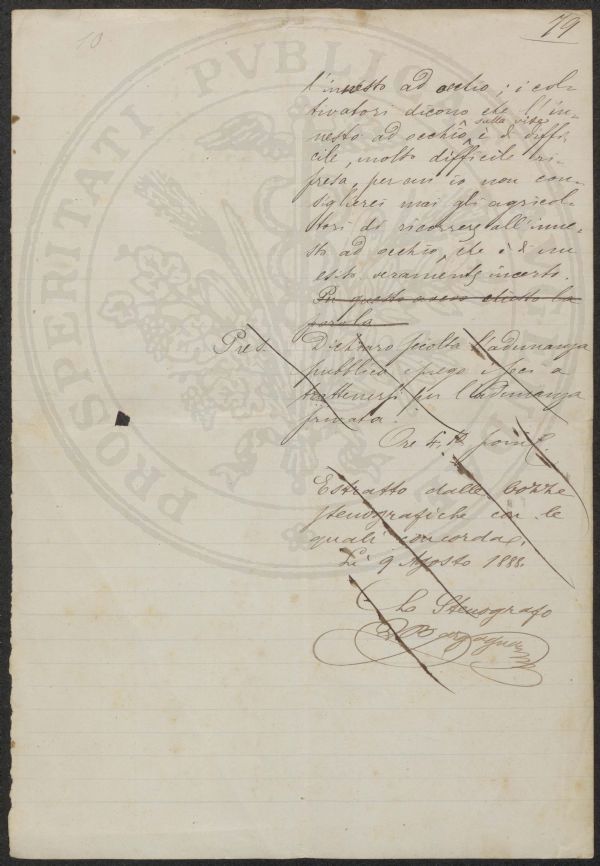 10
79
l'innesto ad occhio; i col-
tivatori dicono che l'in-
nesto ad occhio sulla vite è di diffi-
cile, molto difficile ri-
presa, per cui io non con-
siglierei mai gli agricol-
tori di ricorrere all'inne-
sto ad occhio, che è di un
esito veramente incerto.
Per questo avevo chiesto la
parola
Pres. Dichiaro sciolta l'adunanza
pubblica e prego i soci a
trattenersi per l'adunanza
privata.
Ore 4,
Estratto dalle bozze
stenografiche con le
quali concorda,
Li 9 Agosto 1888.
Lo Stenografo
PROSPERITATI PVBLICAE